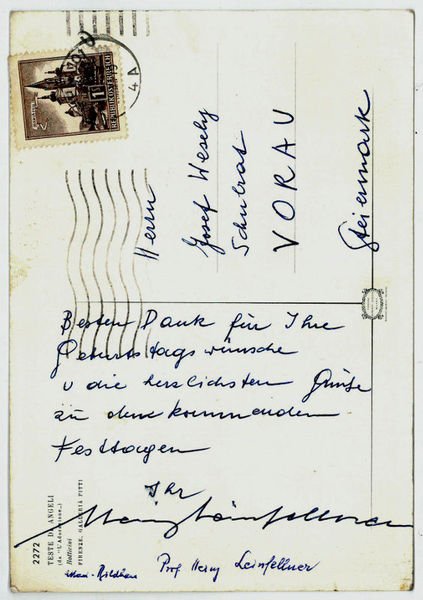 REPUBLIK ÖSTERREICH
4A
Herrn
Josef Wesely
Schulrat
VORAU
Steiermark
Besten Dank für Ihre
Geburtstagswünsche
u die herzlichsten Grüße
zu den kommenden
Festtagen
Ihr
2272 TESTE DI ANGELI
(da "L'Adorazione")
Botticini
FIRENZE, GALLERIA PITTI
Prof Heinz Leinfellner